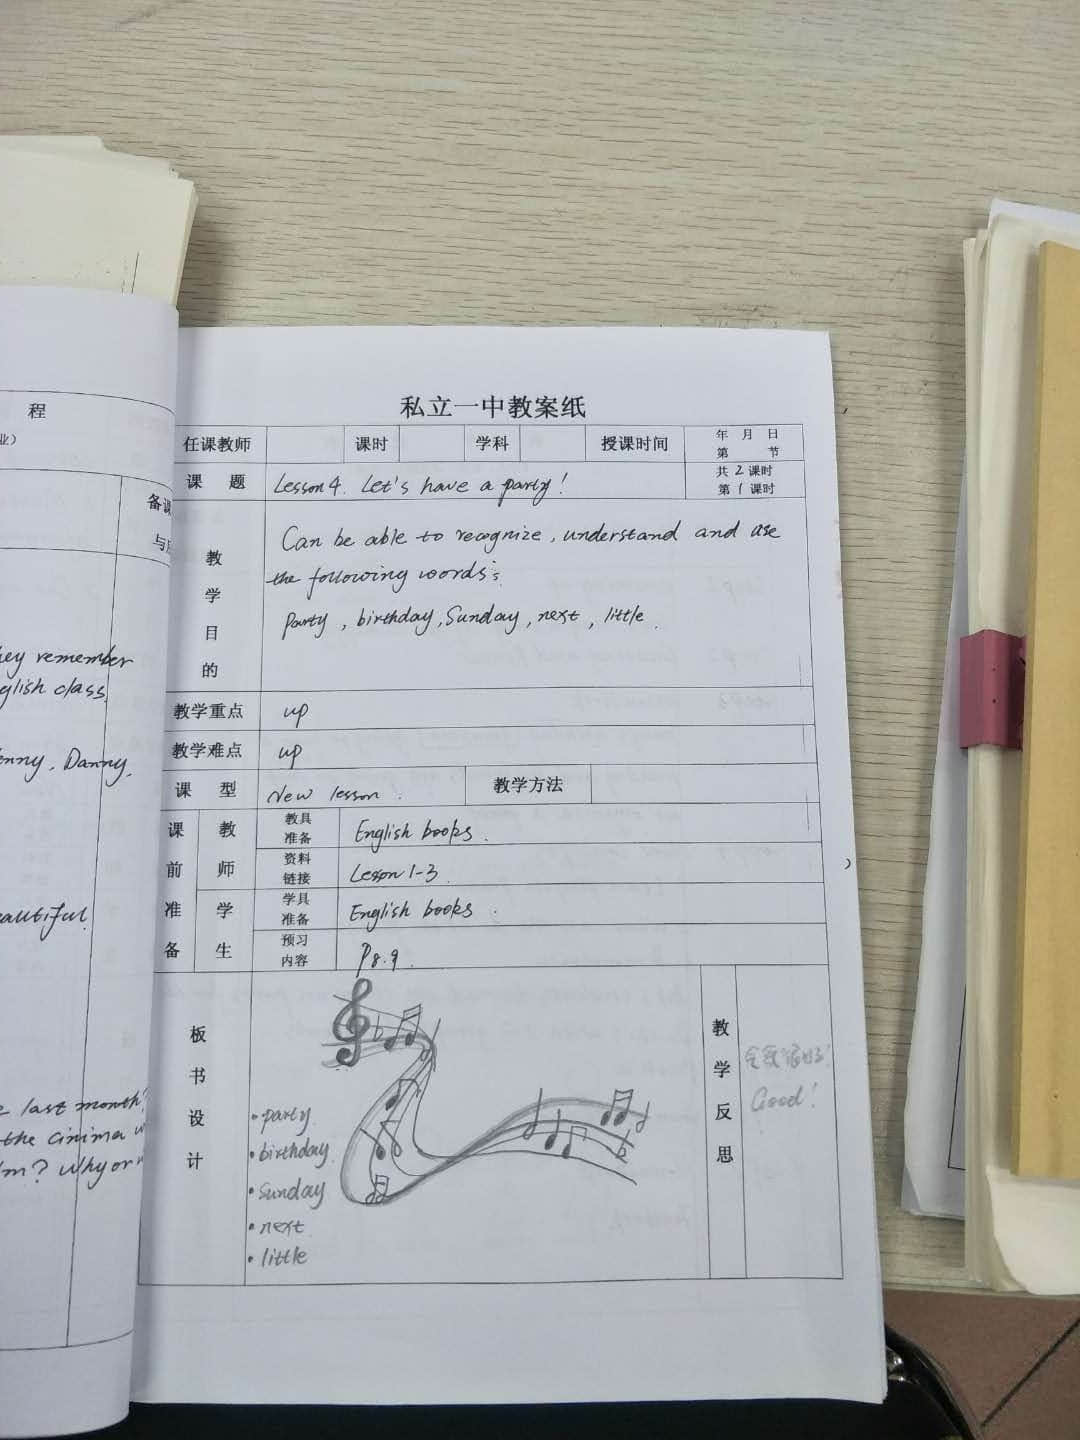 程
业）
备课
与
ey remember
glish class.
enny, Danny,
eautiful
last month?
the cinima w
m? Why or n
私立一中教案纸
任课教师 课时 学科 授课时间 年 月 日
第 节
课 题 Lesson 4. Let's have a party! 共 2 课时
第 1 课时
教学目的 Can be able to recognize, understand and use
the following words:
Party, birthday, Sunday, next, little.
教学重点 up
教学难点 up
课 型 New lesson. 教学方法
课前准备
教师
教具准备 English books.
资料链接 Lesson 1-3.
学生
学具准备 English books.
预习内容 P8.9.
板书设计
• party
• birthday
• Sunday
• next
• little
教学反思
Good!